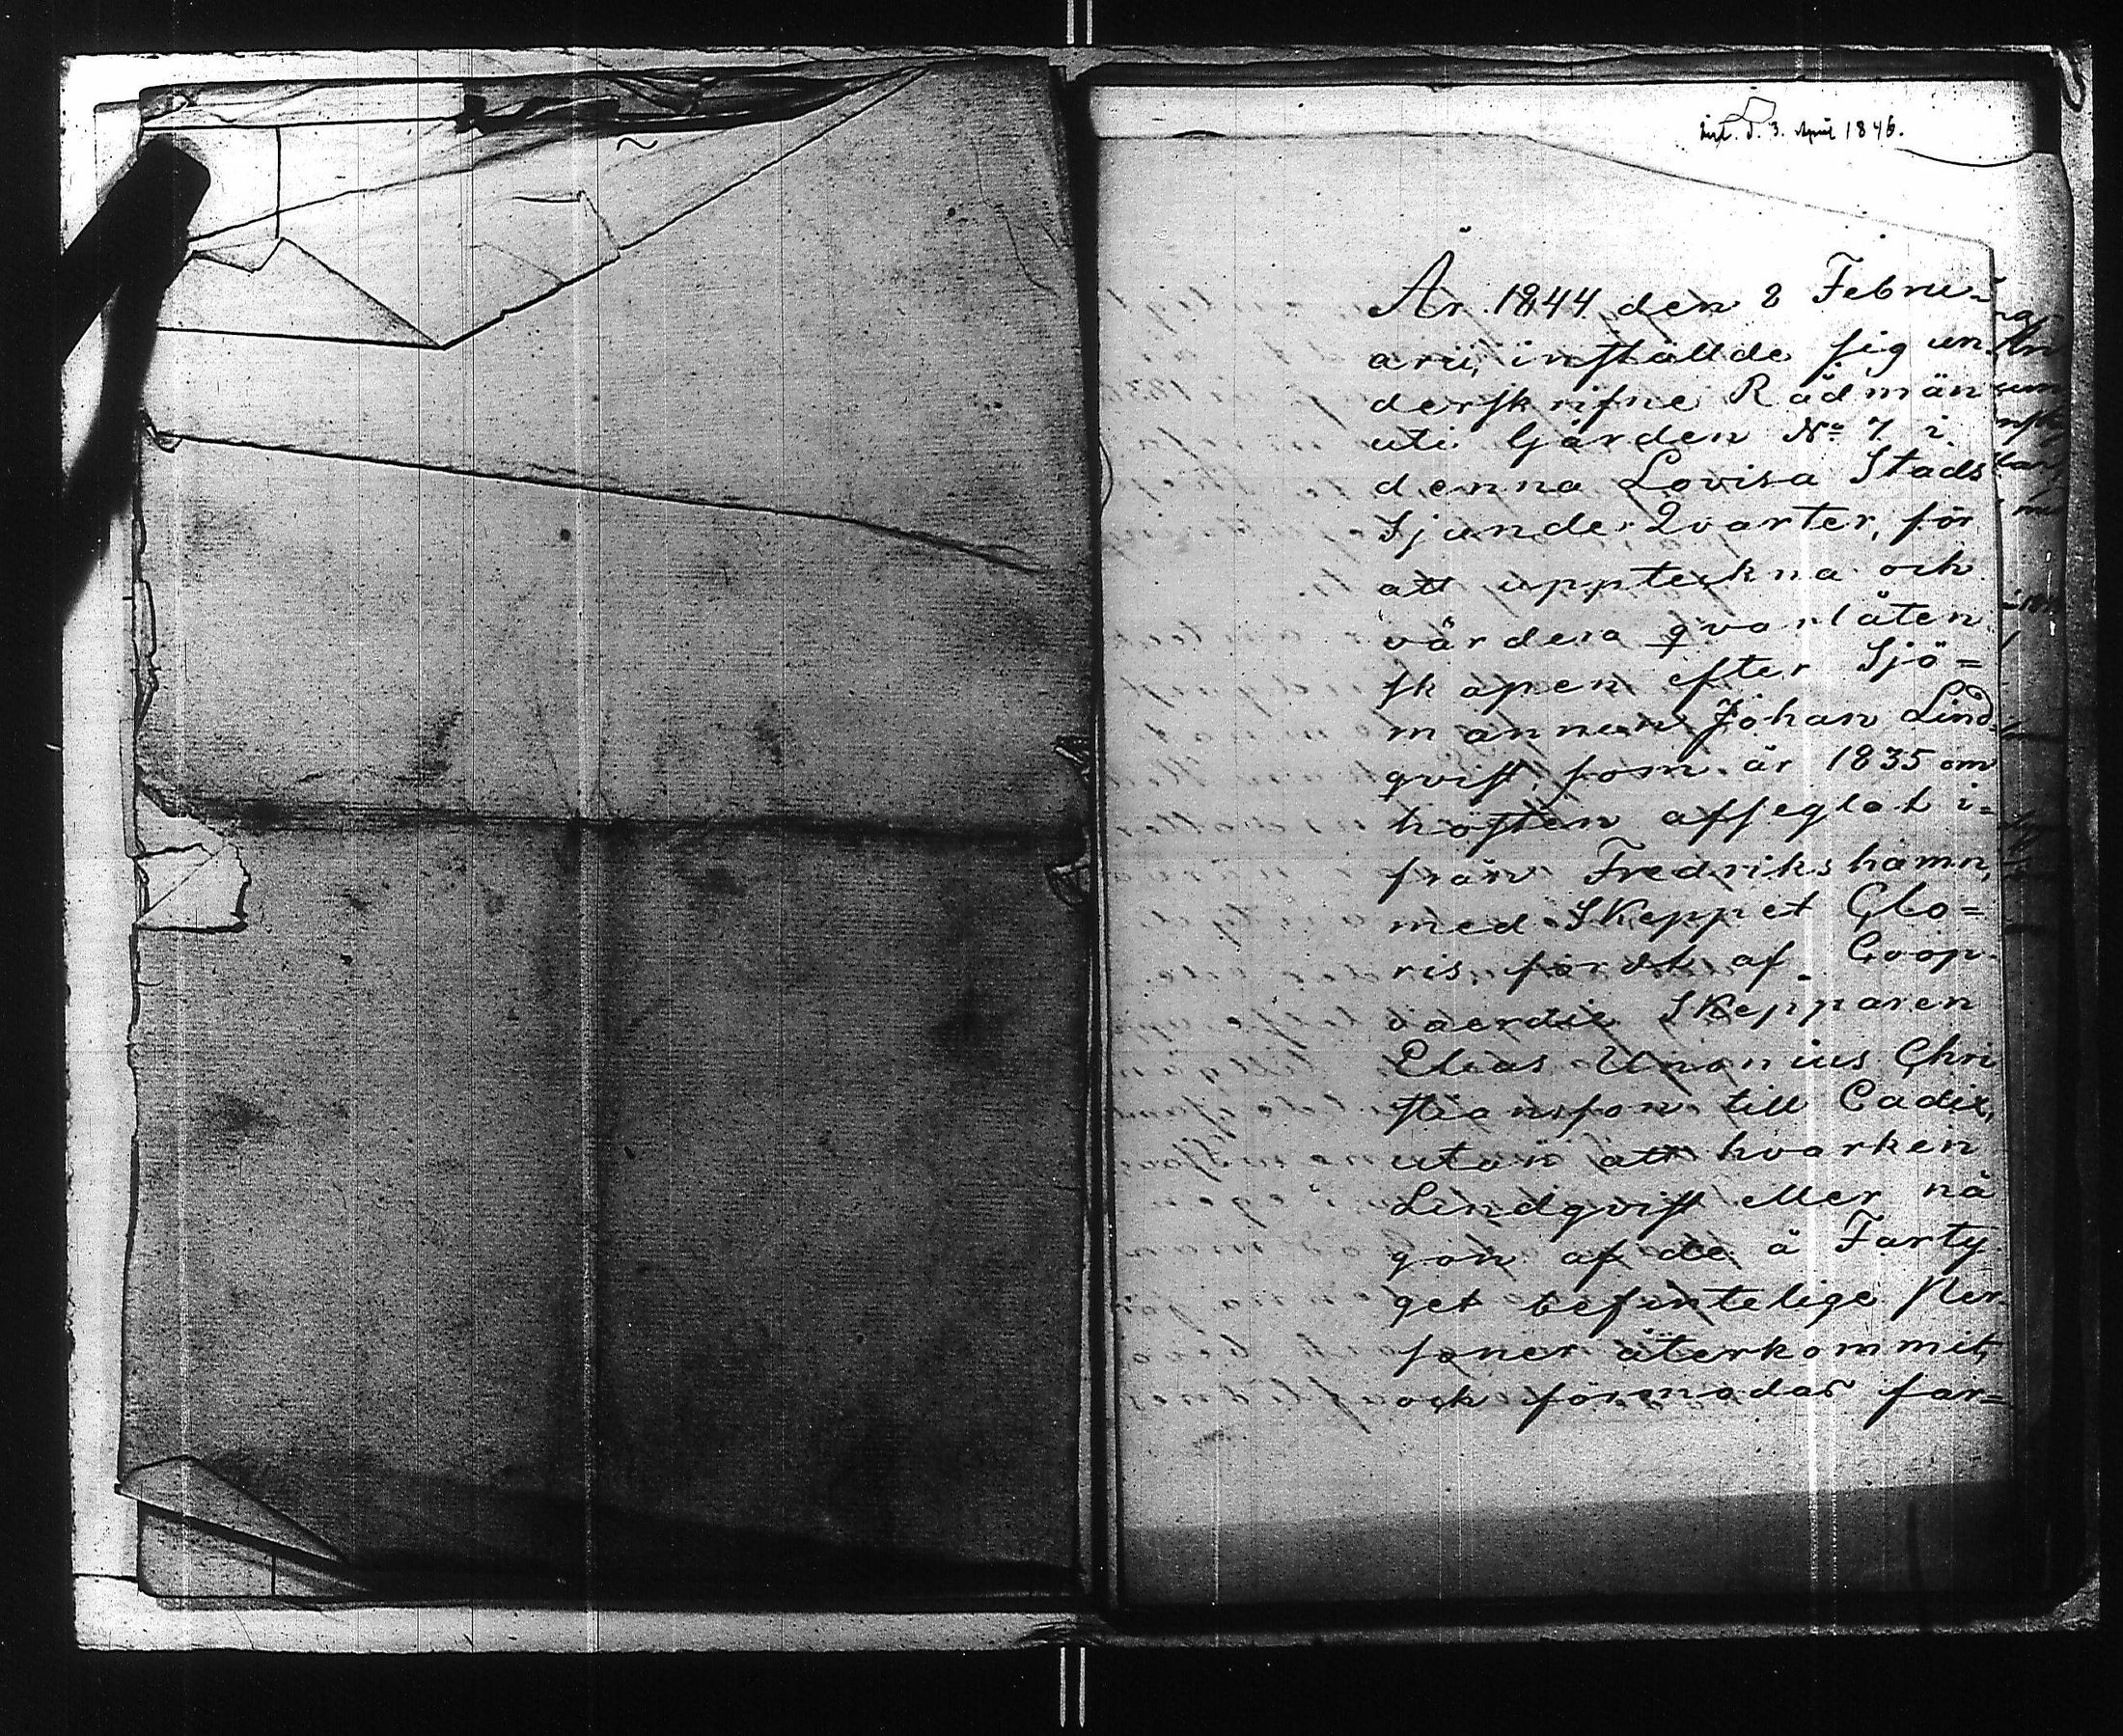 Inl. d. 3. April 1846.
År 1844 den 2 Febru-
arii, inställde sig un-
derskrifne Rådmän
uti Gården No 7 i
denna Lovisa Stads
Sjunde Qvarter, för
att uppteckna och
värdera qvarlåten
skapen efter Sjö=
mannen Johan Lind
qvist, som år 1835 om
hösten afseglat i-
från Fredrikshamn,
med Skeppet Glo=
ris, fördt af Coop-
vaerdie Skepparen
Elias Unonius Chri
stiansson till Cadix,
utan att hvarken
Lindqvist eller nå
gon af de å Farty
get befintelige Per-
soner återkommit,
och förmodas far=